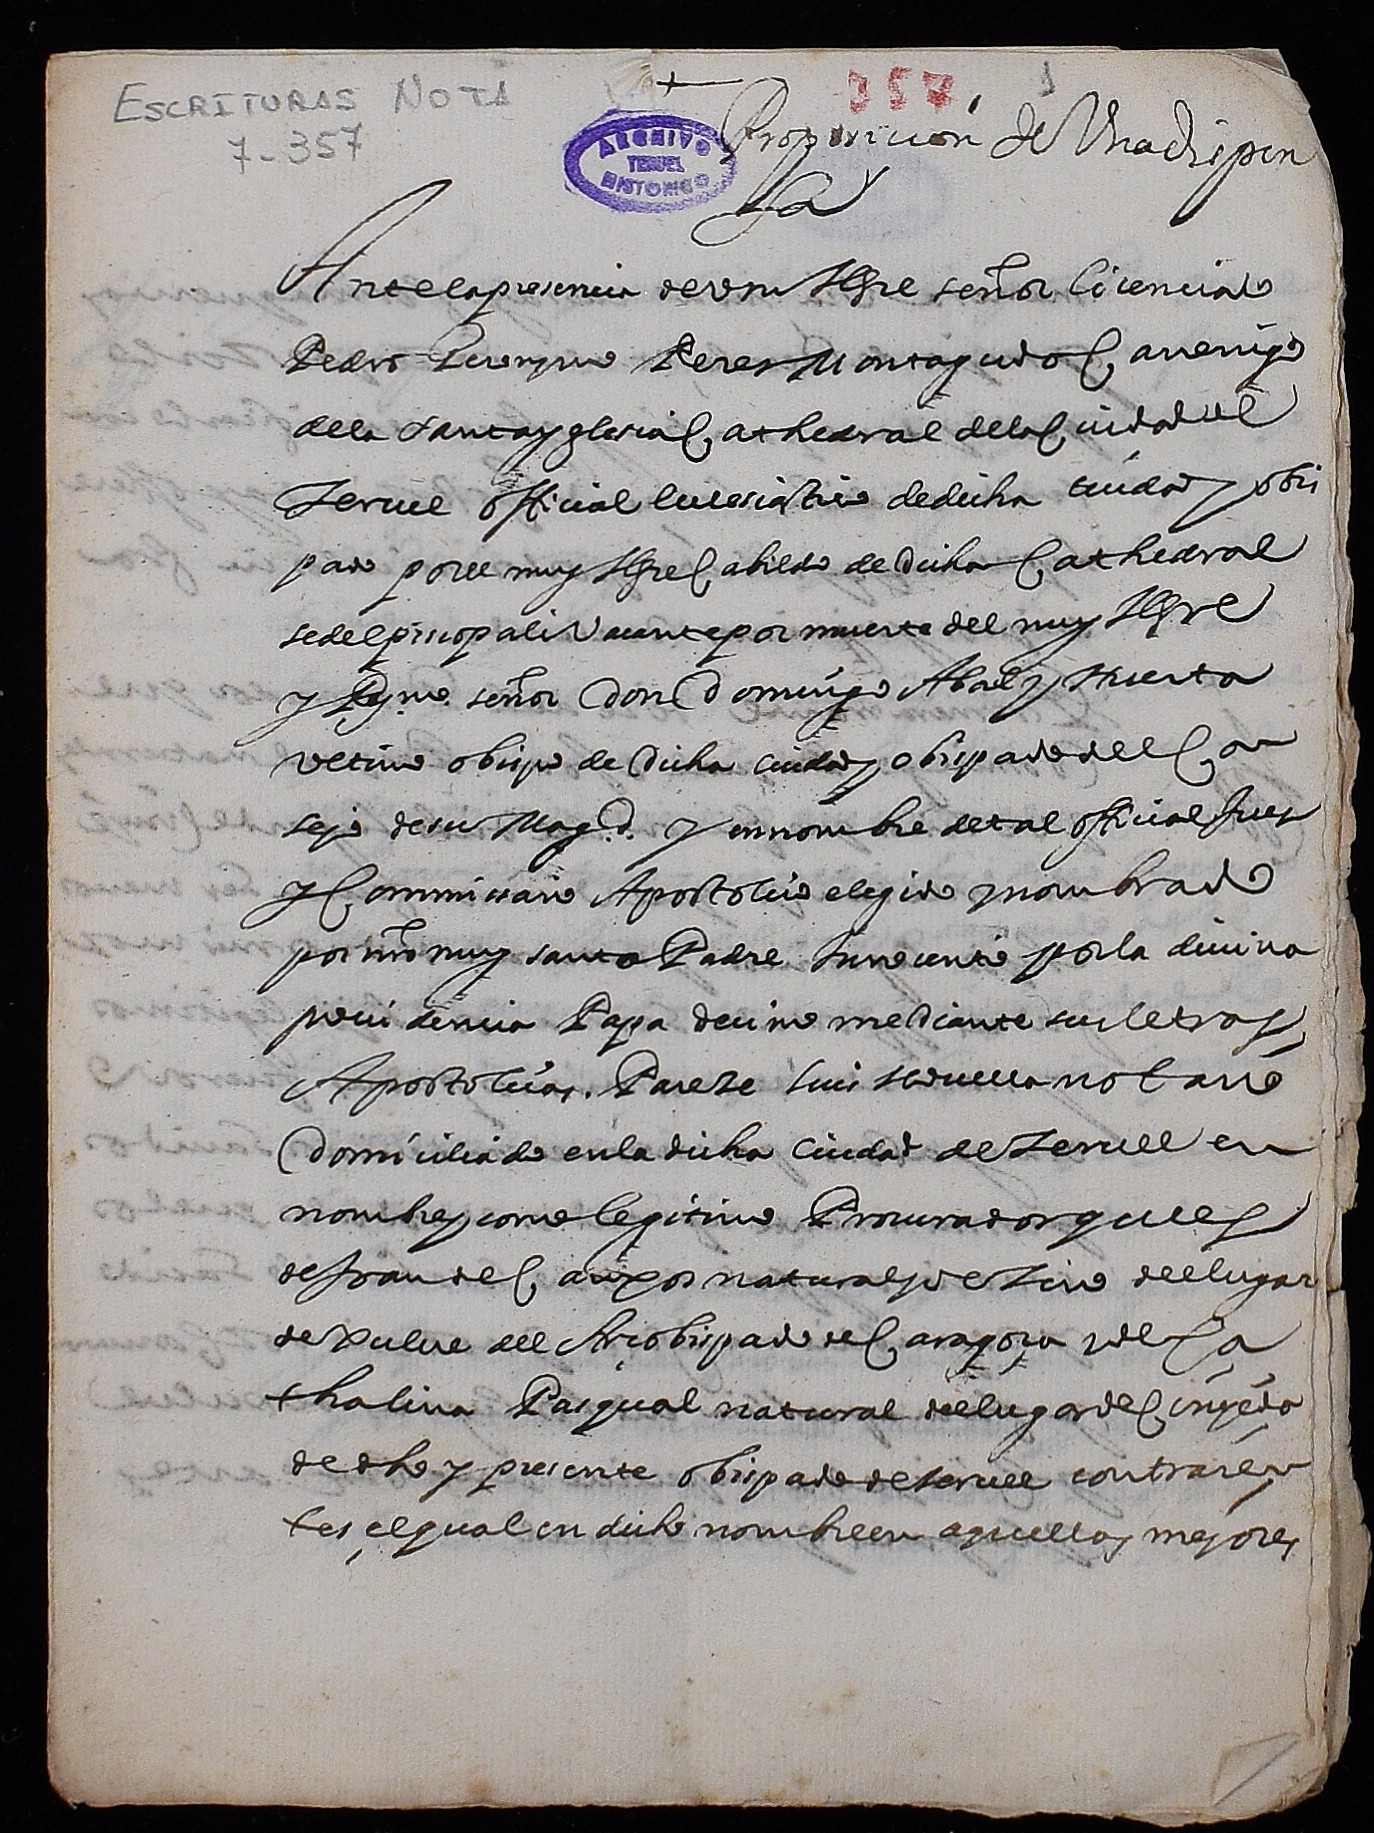 ESCRITURAS NOTA
7-357
357
1
ARCHIVO
TERUEL
HISTORICO
Proposicion de Una dispen
sa
Ante la presencia de vm Illre señor licenciado
Pedro Perez Montagudo Canonigo
de la Santa yglesia Cathedral de la Ciudad de
Teruel official ecclesiastico de dicha ciudad y obis
pado por el muy Illre Cabildo de dicha Cathedral
sede Episcopali Vacante por muerte del muy Illre
y Rmo. señor Don Domingo Abad y Huerta
ultimo obispo de dicha ciudad y obispado del Con
sejo de su Magd. y en nombre de tal official Juez
y Commissario Apostolico elegido y nombrado
por nro muy santo Padre Innocentio por la divina
providencia Papa decimo mediante sus letras
Apostolicas. Pareze Luis Novella notario
Domiciliado en la dicha ciudad de Teruel en
nombre y como legitimo Procurador que es
de Juan del Campo natural y vezino del lugar
de Xulve del Arçobispado de Caragoça y de Ca
thalina Pasqual natural del lugar de
de dho y presente obispado de Teruel contrayen
tes, el qual en dicho nombre en aquellas mejores